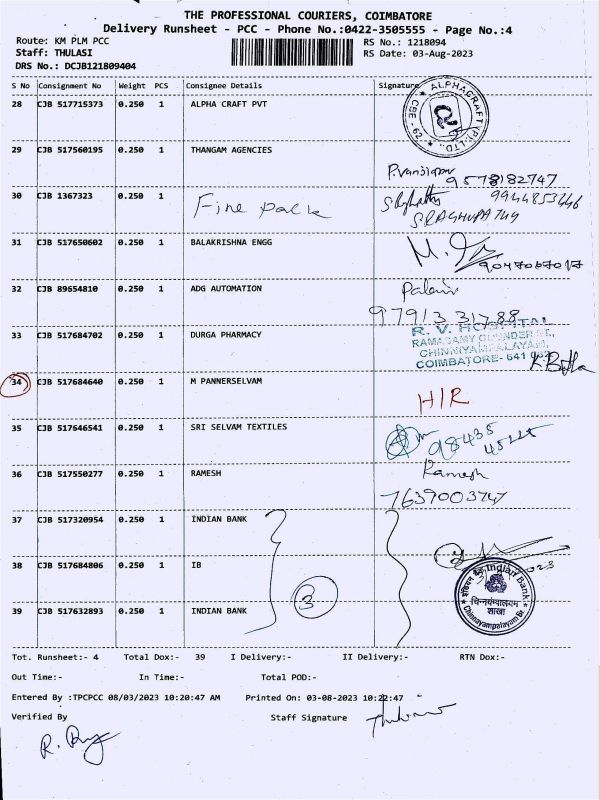 THE PROFESSIONAL COURIERS, COIMBATORE
Delivery Runsheet - PCC - Phone No.:0422-3505555 - Page No.:4
Route: KM PLM PCC RS No.: 1218094
Staff: THULASI RS Date: 03-Aug-2023
DRS No.: DCJB121809404
S No Consignment No Weight PCS Consignee Details Signature
28 CJB 517715373 0.250 1 ALPHA CRAFT PVT
ALPHACRAFT PVT. LTD. CBE - 29
29 CJB 517560195 0.250 1 THANGAM AGENCIES
9578182747
30 CJB 1367323 0.250 1 Fine pack 9944853446
SRAGHUPATHY
31 CJB 517650602 0.250 1 BALAKRISHNA ENGG
9047067017
32 CJB 89654810 0.250 1 ADG AUTOMATION
97913 31788
33 CJB 517684702 0.250 1 DURGA PHARMACY R. V. HOSPITAL
RAMASAMY
CHINNIYAMPALAYAM,
COIMBATORE- 641 062
34 CJB 517684640 0.250 1 M PANNERSELVAM
H/R
35 CJB 517646541 0.250 1 SRI SELVAM TEXTILES
98435
36 CJB 517550277 0.250 1 RAMESH Ramesh
7639003747
37 CJB 517320954 0.250 1 INDIAN BANK
38 CJB 517684806 0.250 1 IB
3
Indian Bank
इंडियन बैंक
चिन्नयम्पालयम
शाखा
Chinnayampalayam Br.
39 CJB 517632893 0.250 1 INDIAN BANK
Tot. Runsheet:- 4 Total Dox:- 39 I Delivery:- II Delivery:- RTN Dox:-
Out Time:- In Time:- Total POD:-
Entered By :TPCPCC 08/03/2023 10:20:47 AM Printed On: 03-08-2023 10:22:47
Verified By Staff Signature